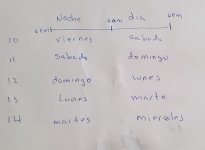 Noche dia
8pm 8am 8pm
10 viernes sabado
11 sabado domingo
12 domingo lunes
13 Lunes marte
14 martes miercoles